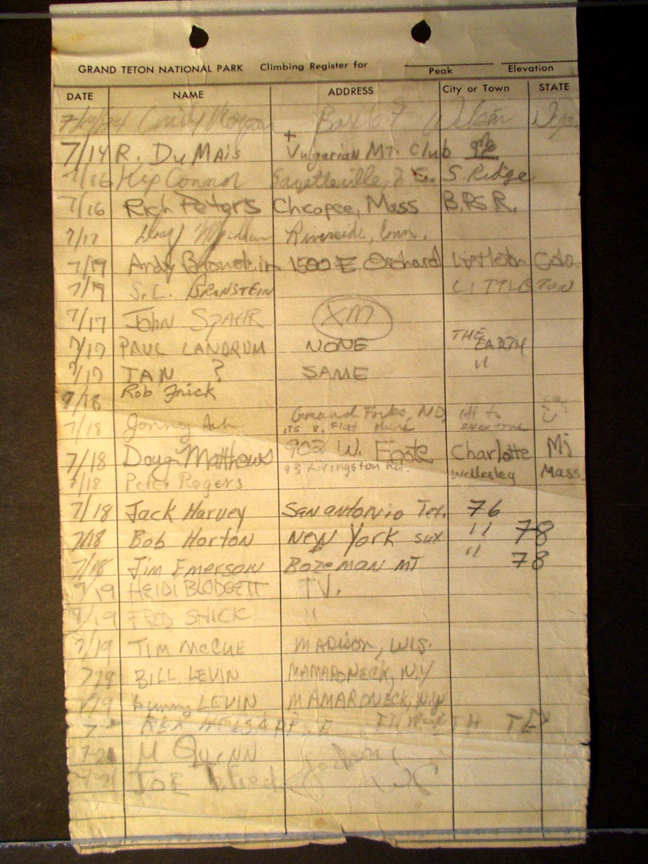 GRAND TETON NATIONAL PARK Climbing Register for
Peak Elevation
DATE NAME ADDRESS City or Town STATE
Box 67 Wilson
7/14 R. DuMais Vulgarian Mt. Club
7/16 Kip Connor Fayetteville, S. Ridge
7/16 Rich Peters Chicopee, Mass B.P.S R.
7/17 Riverside, Conn.
7/17 Andy Bronstein 1500 E. Orchard Littleton Colo.
7/17 S.L. BRANSTEIN LITTLETON
7/17 John XM
7/17 PAUL LANDRUM NONE THE EARTH
7/17 IAN ? SAME "
7/18 Rob Frick
7/18 Jonny Ash Grand Forks, ND, Hi to
its v. flat there everyone
7/18 Doug Matthews 902 W. Charlotte Mi
7/18 Peter Rogers 93 Livingston Rd. Wellesley Mass
7/18 Jack Harvey San antonio Tex. 76
7/18 Bob Horton New York sux " 78
7/18 Jim Emerson Bozeman MT " 78
7/19 HEIDI BLODGETT T.V.
7/19 FRED SHICK "
7/19 TIM McCUE MADISON, WIS.
7/19 BILL LEVIN MAMARONECK, N.Y
7/19 Bunny LEVIN MAMARONECK, N.Y
REX FT. WORTH TEX
7-21 M QUINN
7-21 JOE